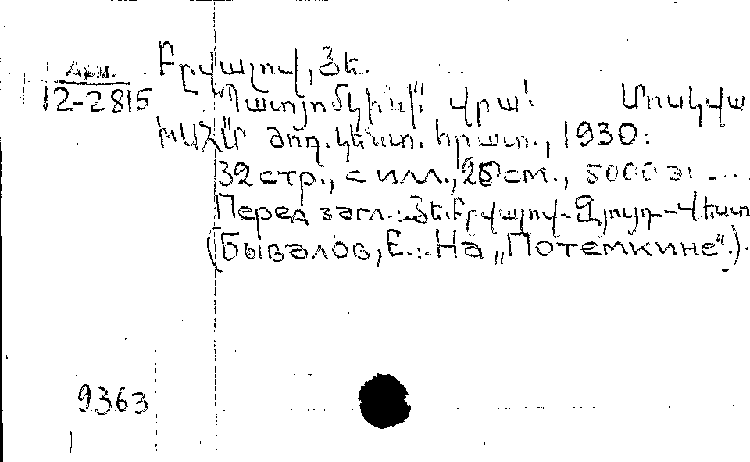 Арм.
12-2815
Բըվալով, Յե.
"Պատյոմկինի" վրա: Մոսկվա
ԽՍՀՄ ժող. կենտ. հրատ., 1930:
32 стр., с илл., см., 5000 э
Перед загл.: Յե. Բըվալով-Զյույդ-Վեստ
(Бывалов, Е.: На „Потемкине".).
9363